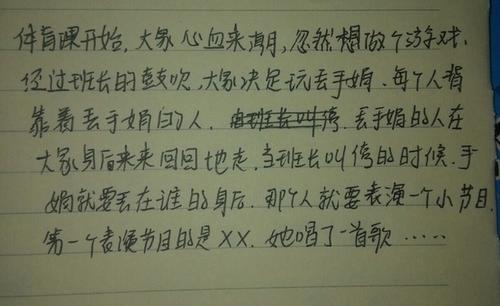 体育课开始，大家心血来潮，忽然想做个游戏.
经过班长的鼓吹，大家决定玩丢手娟. 每个人背
靠着丢手娟的人. 由班长叫停. 丢手娟的人在
大家身后来来回回地走. 当班长叫停的时候. 手
娟就要丢在谁的身后. 那个人就要表演一个小节目.
第一个表演节目的是XX. 她唱了一首歌……